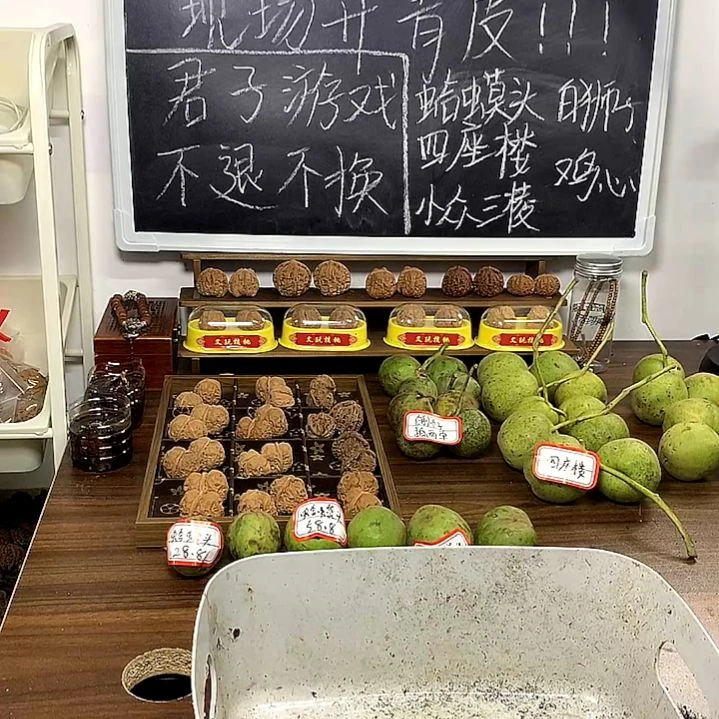 现场开青皮!!!
君子游戏
不退不换
蛤蟆头 白狮子
四座楼
鸡心
小众三菱
文玩核桃
文玩核桃
文玩核桃
文玩核桃
四座楼
58.8
28.8